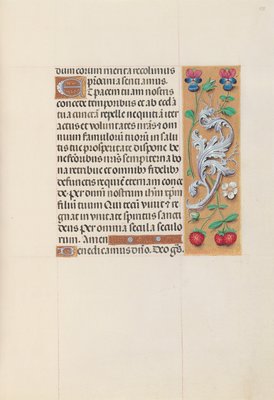 dum quorum merita recolimus
patrocinia sentiamus.
Et pacem tuam nostris
concede temporibus et ab eccl̄a
tua cunctā repelle nequitiā iter
actus et volūtates nr̄as ⁊ om
nium famulorū tuorū in salu
tis tue prosperitate dispone be
nefactoribus nr̄is sempiterna bo
na retribue et omnibꝰ fidelibꝰ
defunctis requiē eternam conce
de. Per dn̄m nostrum ihm̄ xp̄m
filium tuum Qui tecū viuit ⁊ re
gnat in vnitate spiritus sancti
deus Per omnia secula seculo
rum. Amen
Benedicamus dn̄o. Deo gr̄s.